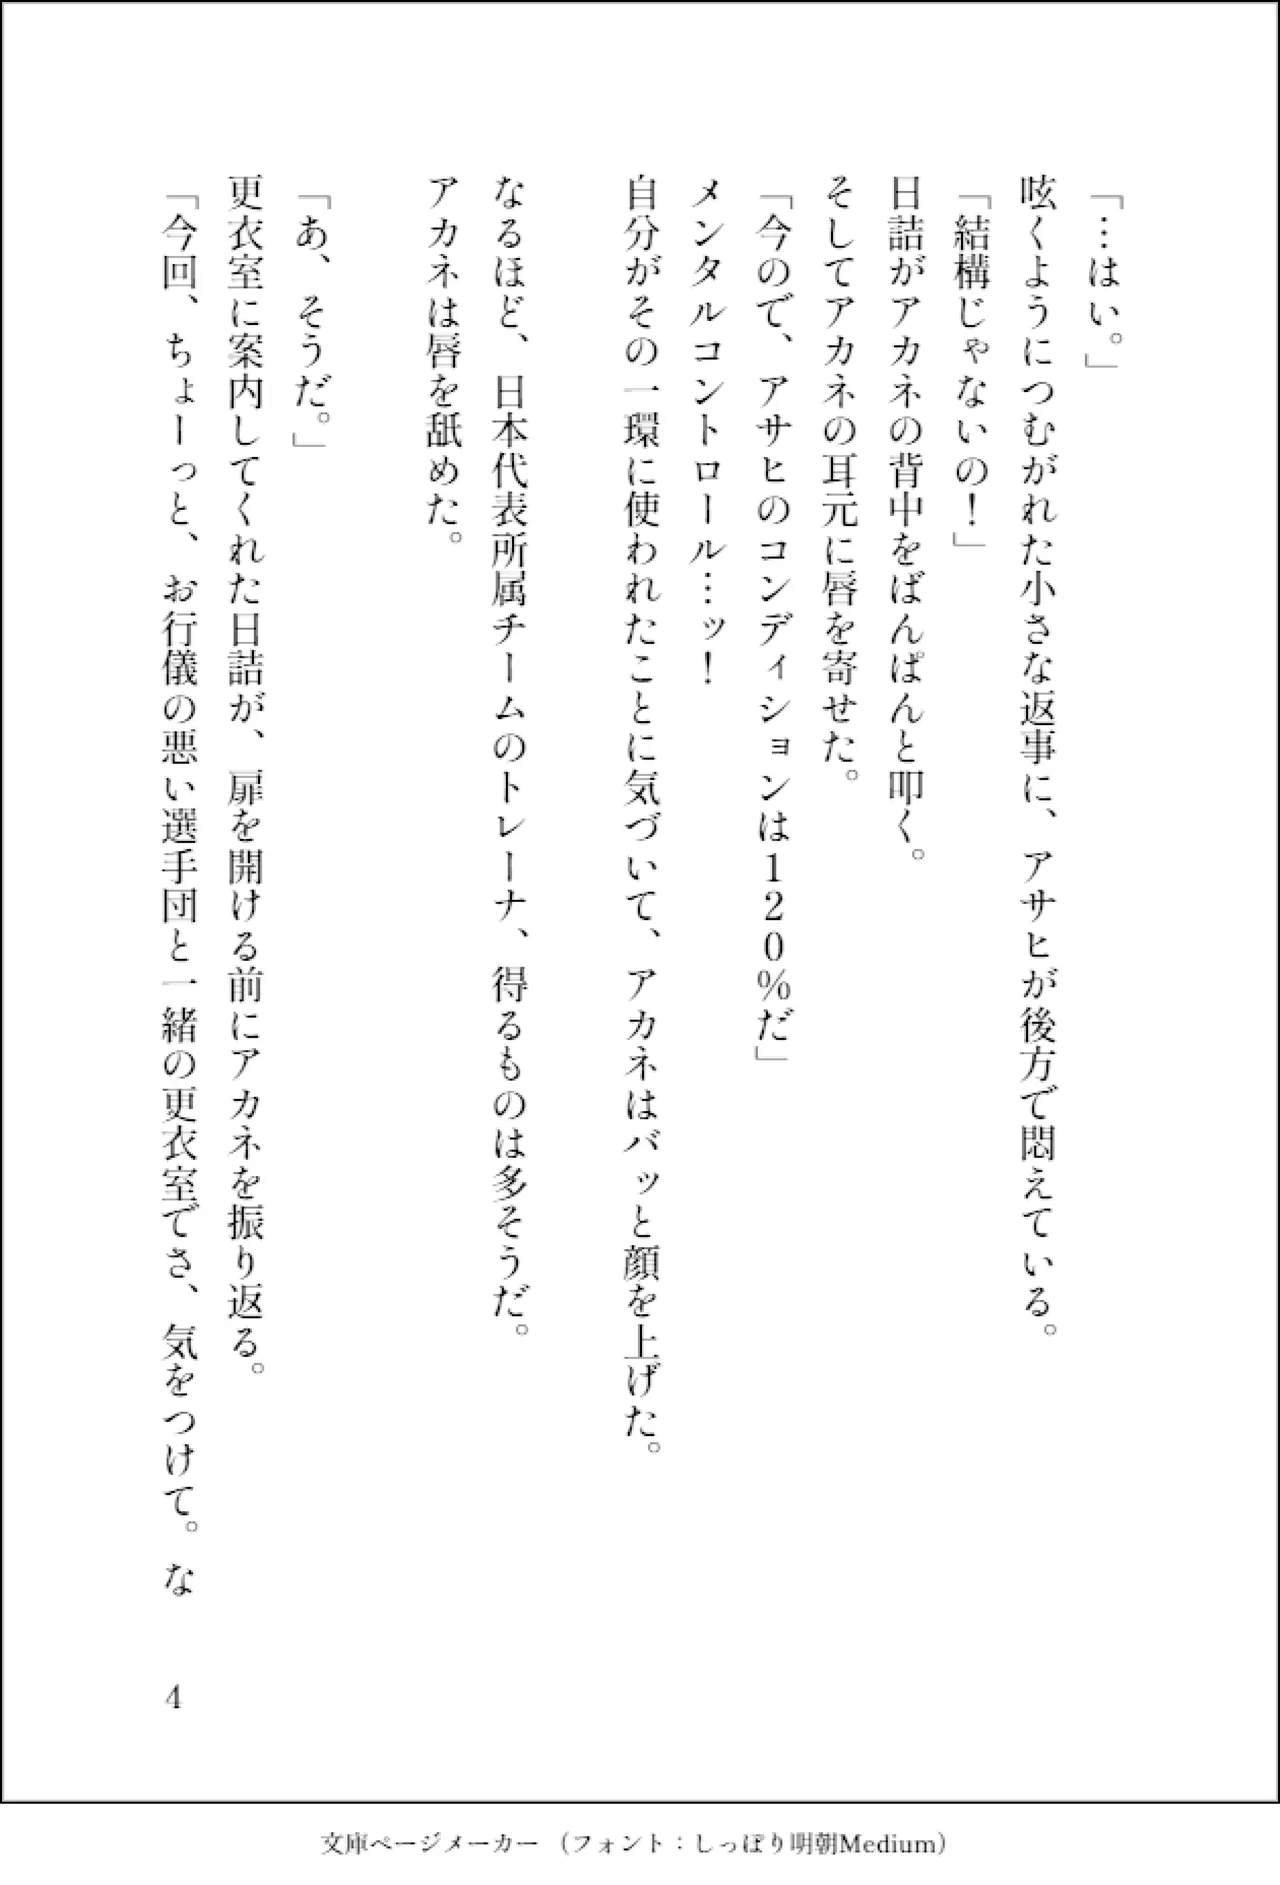 「…はい。」
呟くようにつむがれた小さな返事に、アサヒが後方で悶えている。
「結構じゃないの！」
日詰がアカネの背中をばんぱんと叩く。
そしてアカネの耳元に唇を寄せた。
「今ので、アサヒのコンディションは１２０％だ」
メンタルコントロール…ッ！
自分がその一環に使われたことに気づいて、アカネはバッと顔を上げた。
なるほど、日本代表所属チームのトレーナ、得るものは多そうだ。
アカネは唇を舐めた。
「あ、そうだ。」
更衣室に案内してくれた日詰が、扉を開ける前にアカネを振り返る。
「今回、ちょーっと、お行儀の悪い選手団と一緒の更衣室でさ、気をつけて。な
4
文庫ページメーカー （フォント：しっぽり明朝Medium）